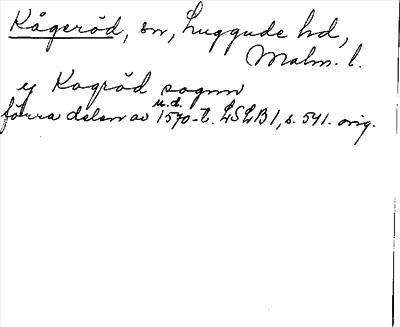 Kågeröd, sn, Luggude hd,
Malm. l.
ey Kogröd sognn
u.d.
förra delen av 1570-t. LSLB 1, s. 541. orig.